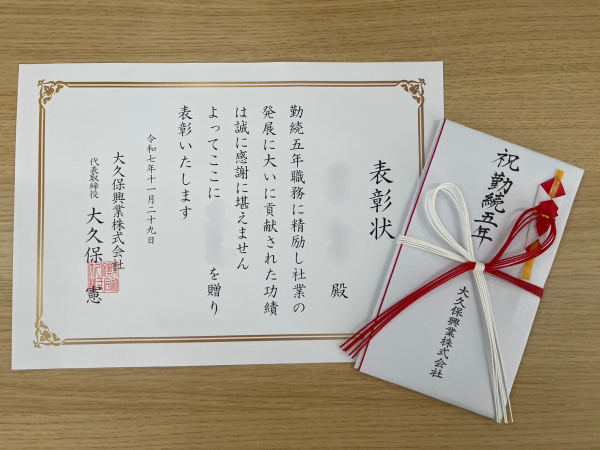 表彰状
殿
勤続五年職務に精励し社業の
発展に大いに貢献された功績
は誠に感謝に堪えません
よってここに を贈り
表彰いたします
令和七年十一月二十九日
大久保興業株式会社
代表取締役 大久保 憲
祝 勤続五年
大久保興業株式会社